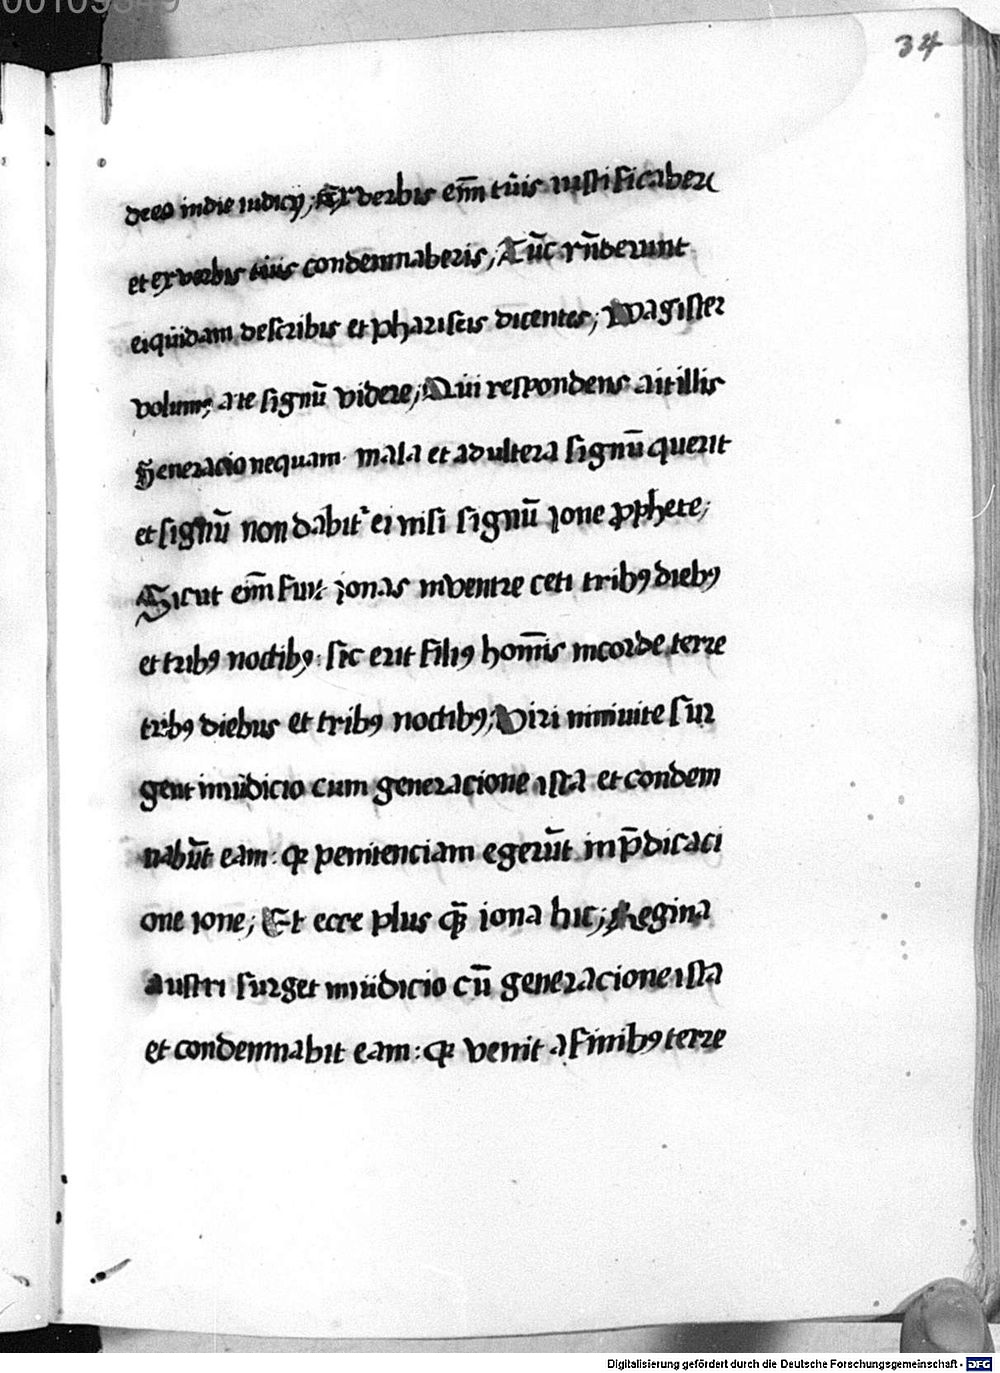 34
deeo indie iudicij; Ex verbis em̄ tuis iustificaberis
et ex verbis tuis condemnaberis, Tūc rn̄derunt
ei qūidam de scribis et phariseis dicentes; Magister
volumꝰ a te signū videre; Qui respondens ait illis
Generacio nequam mala et adultera signū querit
et signū non dabitʳ ei nisi signū jone ꝓphete;
Sicut em̄ fuit jonas in ventre ceti tribꝰ diebꝰ
et tribꝰ noctibꝰ: sic erit filiꝰ hom̄is in corde terre
tribꝰ diebus et tribꝰ noctibꝰ; Viri niniuite sur
gent in iudicio cum generacione ista et condem
nabūt eam: qꝛ penitenciam egerūt in p̄dicaci
one ione; Et ecce plus qꝫ̄ iona hic; Regina
austri surget in iudicio cū generacione ista
et condemnabit eam: qꝛ venit a finibꝰ terre
Digitalisierung gefördert durch die Deutsche Forschungsgemeinschaft - DFG